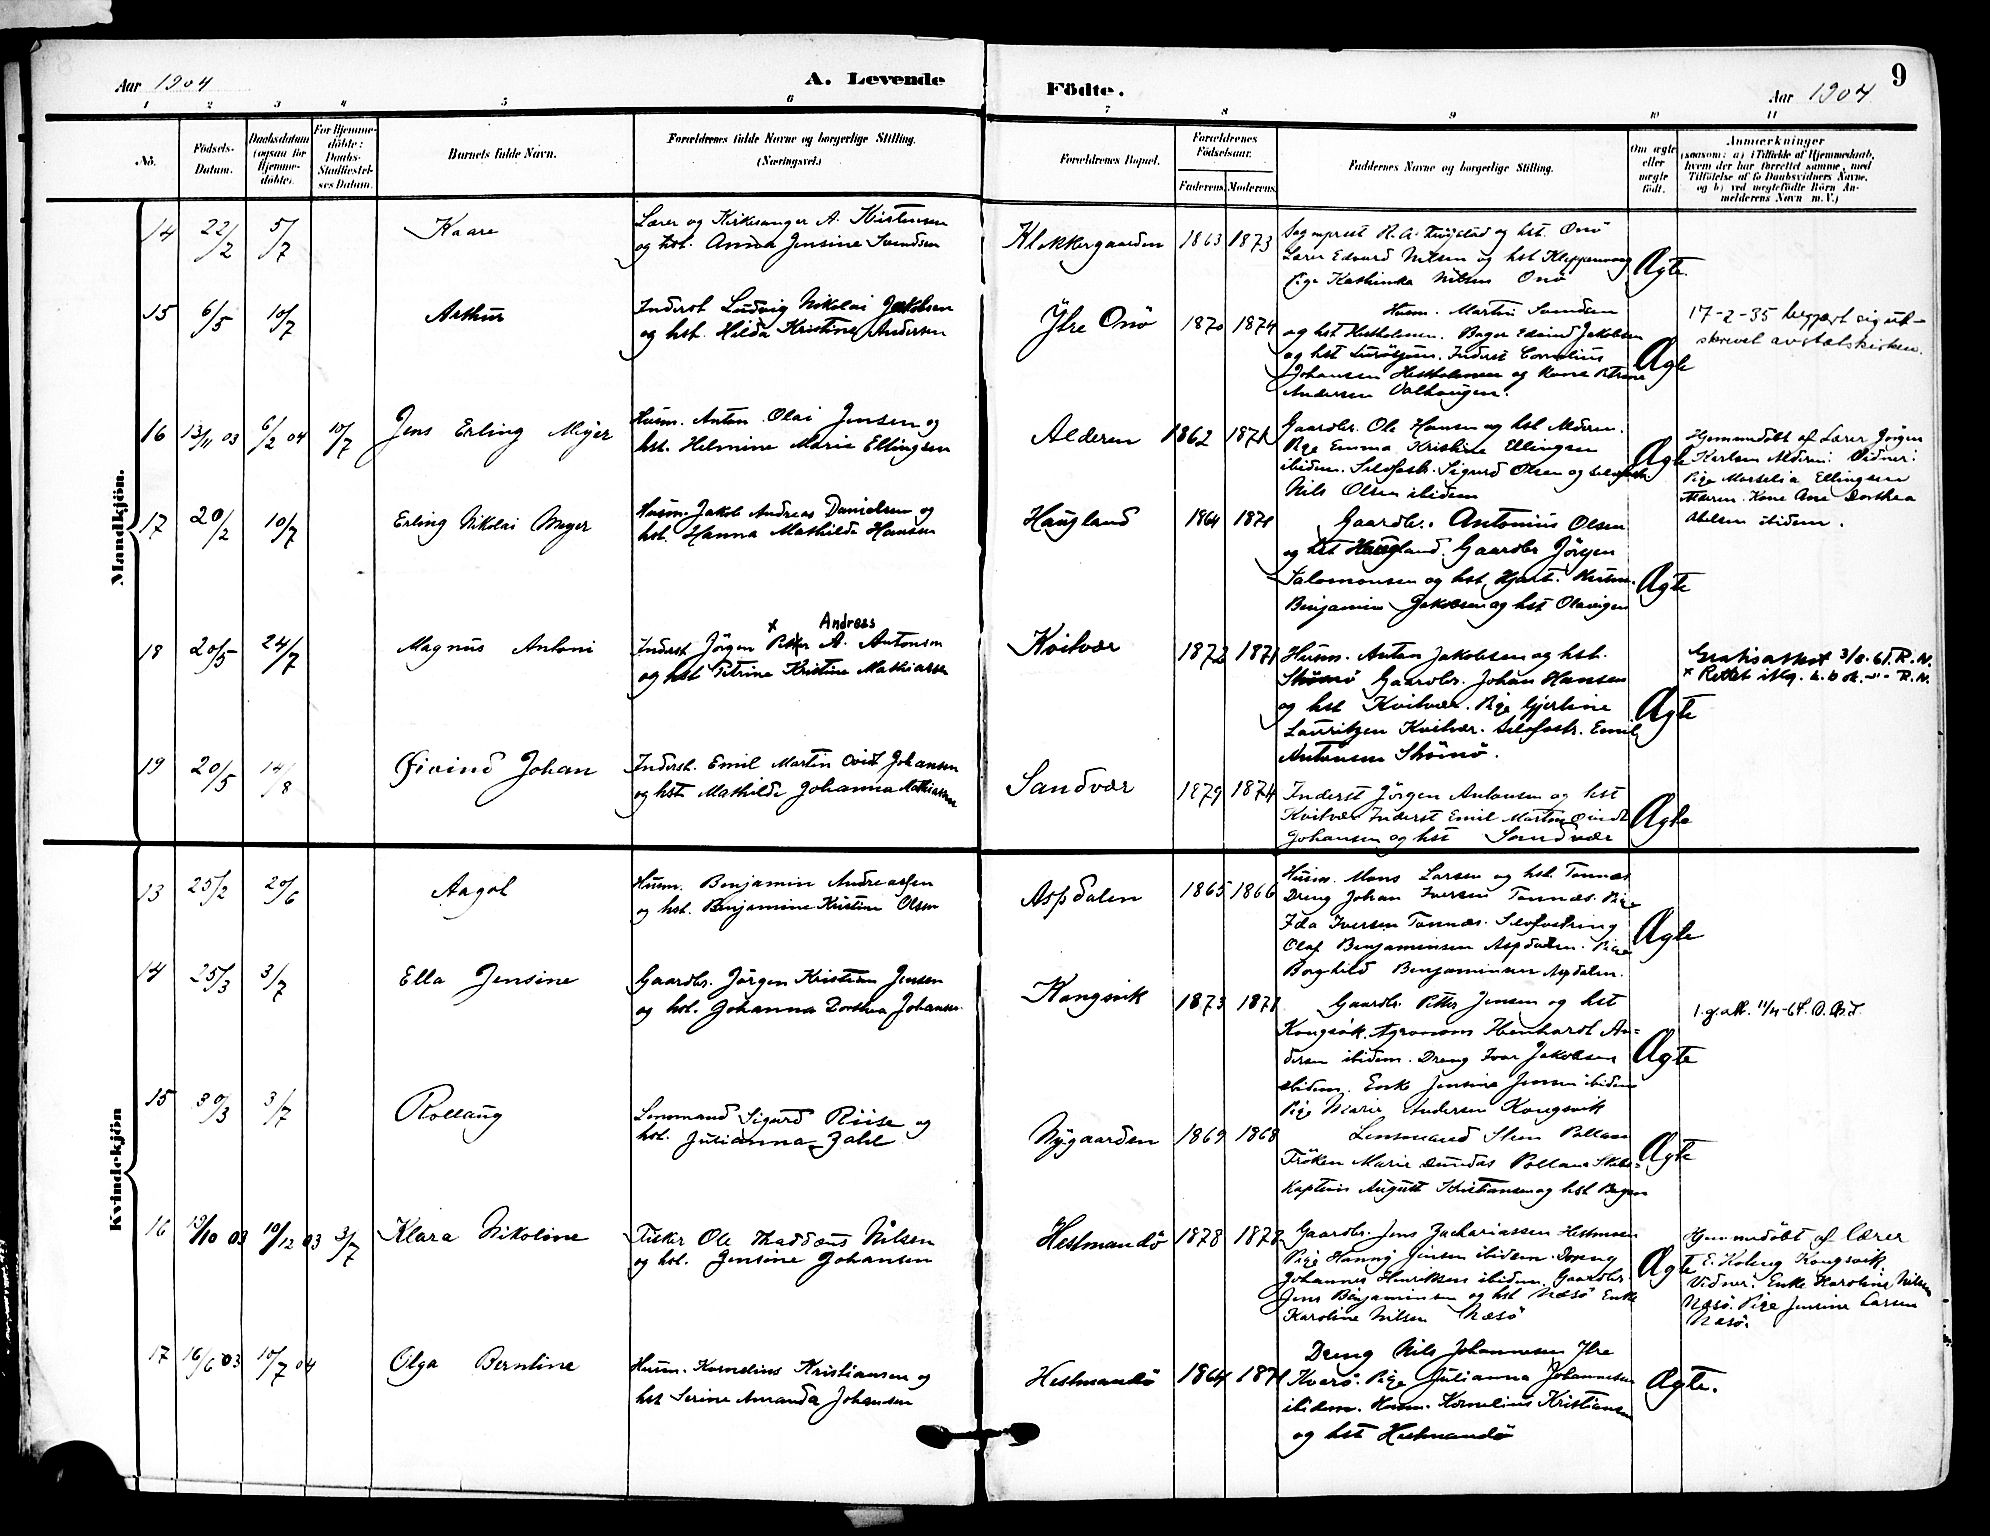 9
Aar 1904
A. Levende
Födte.
Aar 1904
1 2 3 4 5 6 7 8 9 10 11
No.
Födsels-
Datum.
Daabsdatum
(ogsaa for
Hjemme-
döbte).
For Hjemme-
döbte:
Daabs-
Stadfæstel-
ses Datum.
Barnets fulde Navn.
Forældrenes fulde Navne og borgerlige Stilling.
(Næringsvei.)
Forældrenes Bopæl.
Forældrenes
Födselsaar.
Faderens. Moderens.
Faddernes Navne og borgerlige Stilling.
Om ægte
eller
uægte
födt.
Anmærkninger
(saasom: a) i Tilfælde af Hjemmedaab,
hvem der har forrettet samme, med
Tilföielse af to Daabsvidners Navne,
og b) ved uægtefödte Börn An-
melderens Navn m. V.)
Mandkjön.
14 22/2 5/7 Kaare
Lærer og Kirkesanger A. Kristensen
og hst. Anna Jensine Svendsen
Klokkergaarden 1863 1873
Sogneprest R. A. og hst. Onö
Lærer Edvard Nilsen og hst Kleppenvaag
Pige Kathinka Nilsen Onö
Ægte.
15 6/5 10/7 Arthur
Inderst Ludvig Nikolai Jakobsen
og hst. Hilda Kristine Andersen
Ytre Onö 1870 1874
Husm. Martin Svendsen
og hst Hestholmen. Bager Edvind Jakobsen
og hst Inderst Cornelius
Johansen Hestholmen og Kone Petrine
Andersen Valhaugen.
Ægte
17-2-35 begjært sig ut-
skrevet av statskirken.
16 13/11 03 6/2 04 10/7 Jens Erling Meyer
Husm. Anton Olai Jensen og
hst. Helmine Marie Ellingsen
Alderen 1862 1871
Gaardbr. Ole Hansen og hst Alderen.
Pige Emma Kristine Ellingsen
ibidem. Selvfostr. Sigurd Olsen og selvfostr.
Nils Olsen ibidem
Ægte
Hjemmedöbt af Lærer Jörgen
Karlsen Alderen: Vidner:
Pige Marselia Ellingsen
Alderen. Kone Ane Dorthea
Abelsen ibidem.
17 20/2 10/7 Erling Nikolai Meyer
Husm. Jakob Andreas Danielsen og
hst. Hanna Mathilde Hansen
Haugland 1864 1871
Gaardbr. Antonius Olsen
og hst Haugland. Gaardbr Jörgen
Salomonsen og hst, Hjart. Husm.
Benjamin Jakobsen og hst Olavigen
Ægte
18 20/5 24/7 Magnus Antoni
x Andreas
Inderst Jörgen Peter A. Antonsen
og hst Petrine Kristine Mathiassen
Kvitvær 1872 1871
Husm. Anton Jakobsen og hst.
Skömö Gaardbr. Johan Hansen
og hst Kvitvær. Pige Gjertine
Lauritzen Kvitvær. Selvfostr. Emil
Antonsen Skömö.
Ægte
Gratisattest 3/8.61. R.N.
x Rettet iflg. k. bok. -"- R.N.
19 20/5 14/8 Øivind Johan
Inderst. Emil Martin Ovidt Johansen
og hst Mathilde Johanna Mathiassen
Sandvær 1879 1874
Inderst Jörgen Antonsen og hst
Kvitvær Inderst Emil Martin Ovidt
Johansen og hst Sandvær
Ægte
Kvindekjön
13 25/2 20/6 Aagot
Husm. Benjamin Andreassen
og hst. Benjamine Kristine Olsen
Aspdalen 1865 1866
Husm. Mons Larsen og hst. Tonnæs
Dreng Johan Iversen Tonnæs. Pige
Ida Iversen Tonnæs. Selvfostring
Olaf Benjaminsen Aspdalen. Pige
Borghild Benjaminsen Aspdalen.
Ægte
14 25/3 3/7 Ella Jensine
Gaardbr. Jörgen Kristian Jensen
og hst. Johanna Dorthea Johansen.
Kongsvik 1873 1871
Gaardbr. Petter Jensen og hst
Kongsvik. Agronom An-
dersen ibidem. Dreng Ivar Jakobsen
ibidem. Enke Jensine Jensen ibidem
Pige Marie Andersen Kongsvik
Ægte
1.g.att. 11/4-64.
15 30/3 3/7 Rollaug
Lensmand Sigurd Riise og
hst. Julianna Zahl
Nygaarden 1869 1868
Lensmand Sten Pollan
Fröken Marie Dundas Pollan
Kaptein August Kristiansen og hst Bergen
Ægte
16 13/10 03 10/12 03 3/7 Klara Nikoline
Fisker Ole Thaddæus Nilsen
og hst. Jensine Johansen
Hestmandö 1878 1878
Gaardbr. Jens Zachariassen Hestmoen
Pige Hanny Jensen ibidem. Dreng
Johannes Henriksen ibidem. Gaardbr.
Jens Benjaminsen og hst Næsö Enke
Karoline Nilsen Næsö
Ægte
Hjemmedöbt af Lærer
E. Kongsvik.
Vidner: Enke Karoline Nilsen
Næsö. Pige Jensine Larsen
Næsö.
17 16/6 03 10/7 04 Olga Berntine
Husm. Kornelius Kristiansen og
hst Serine Amanda Johansen
Hestmandö 1864 1871
Dreng Nils Johannesen Ytre
Kvarö. Pige Julianna Johannesen
ibidem. Husm. Kornelius Kristiansen
og hst Hestmandö
Ægte.